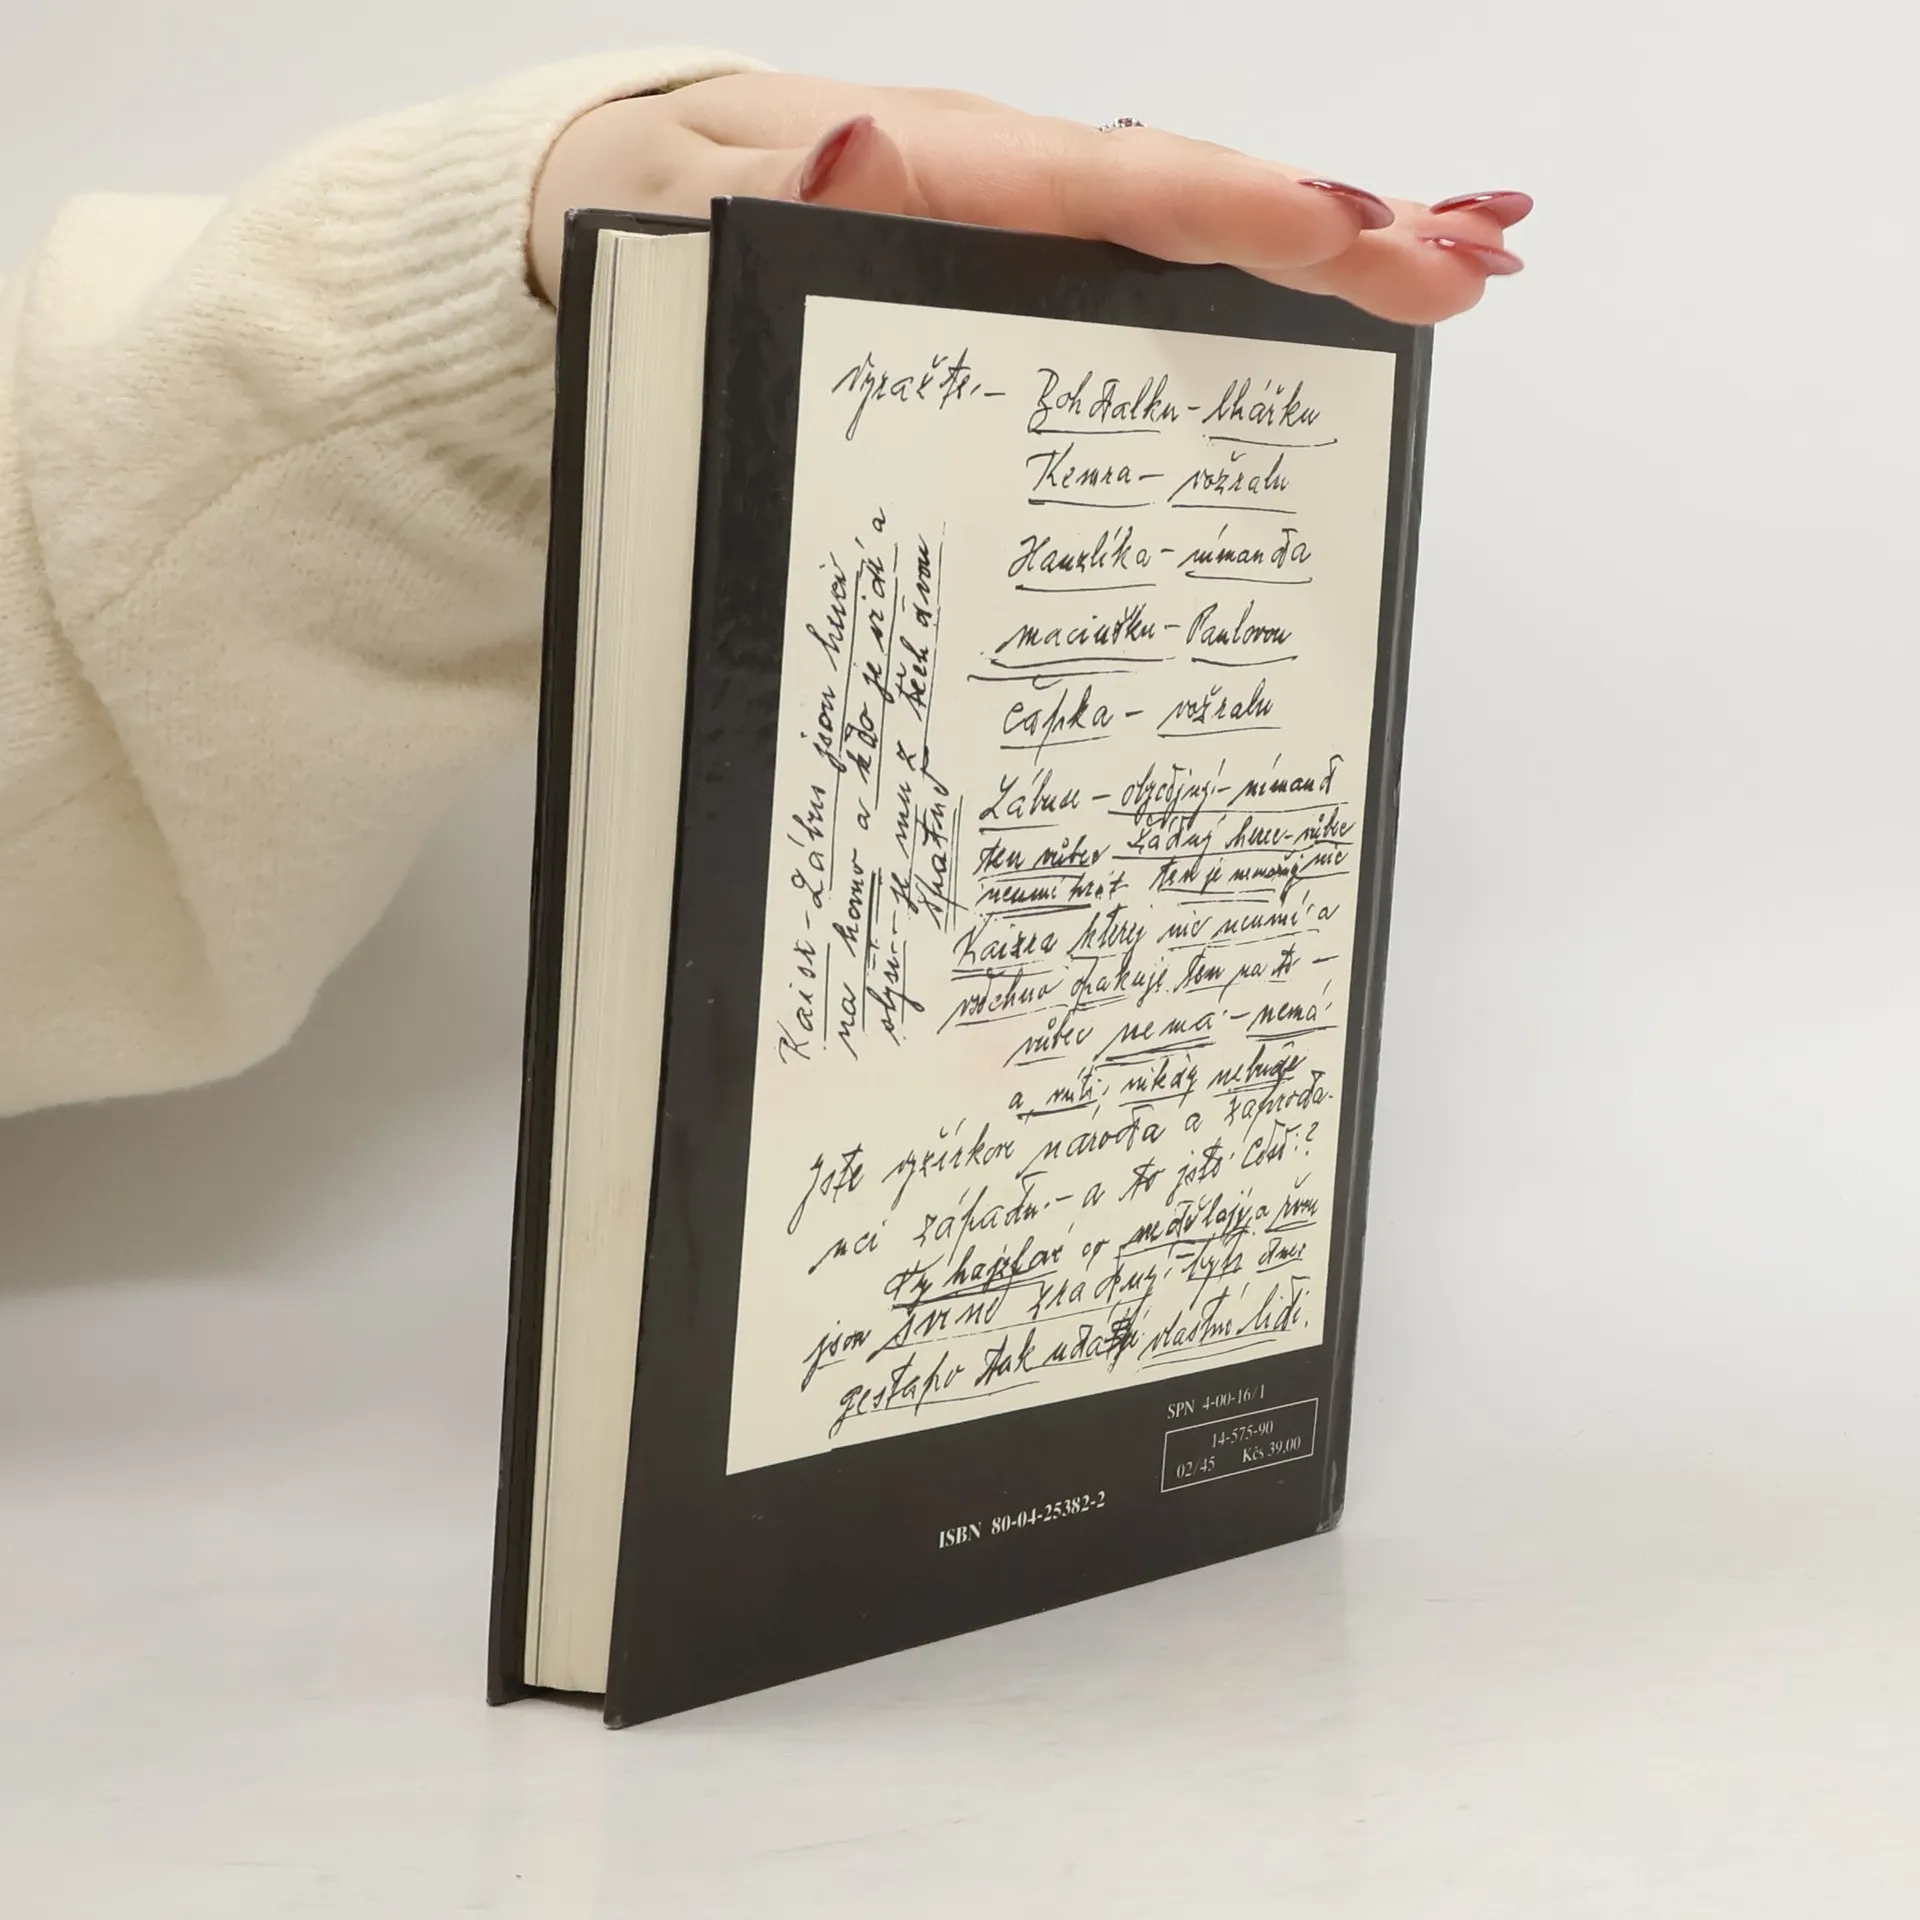 vyražte.– Bohdalku – lhářku
Kemra – vožralu
Hanzlíka – nímanda
maciušku – Pavlovou
Čapka – vožralu
Lábus – obyčejný – nímand
ten vůbec žádný herec – vůbec
neumí hrát ten je nemožný nic
Kaisra kterej nic neumí a
všechno opakuje. ten na to –
vůbec nemá – nemá
a míti, nikdy nebude
Jste vyžírkove národa a zaproda-
nci západu. – a to jste. Což:?
Ty hajzlové co nedělají a řvou
jsou svině zradný – být dnes
gestapo tak udají vlastní lidi.
Kaisr – Lábus jsou herci
na hovno a kdo je vidí a
slyší – je mu z těch dvou
špatně
SPN 4-00-16/1
14-575-90
02/45 Kčs 39,00
ISBN 80-04-25382-2